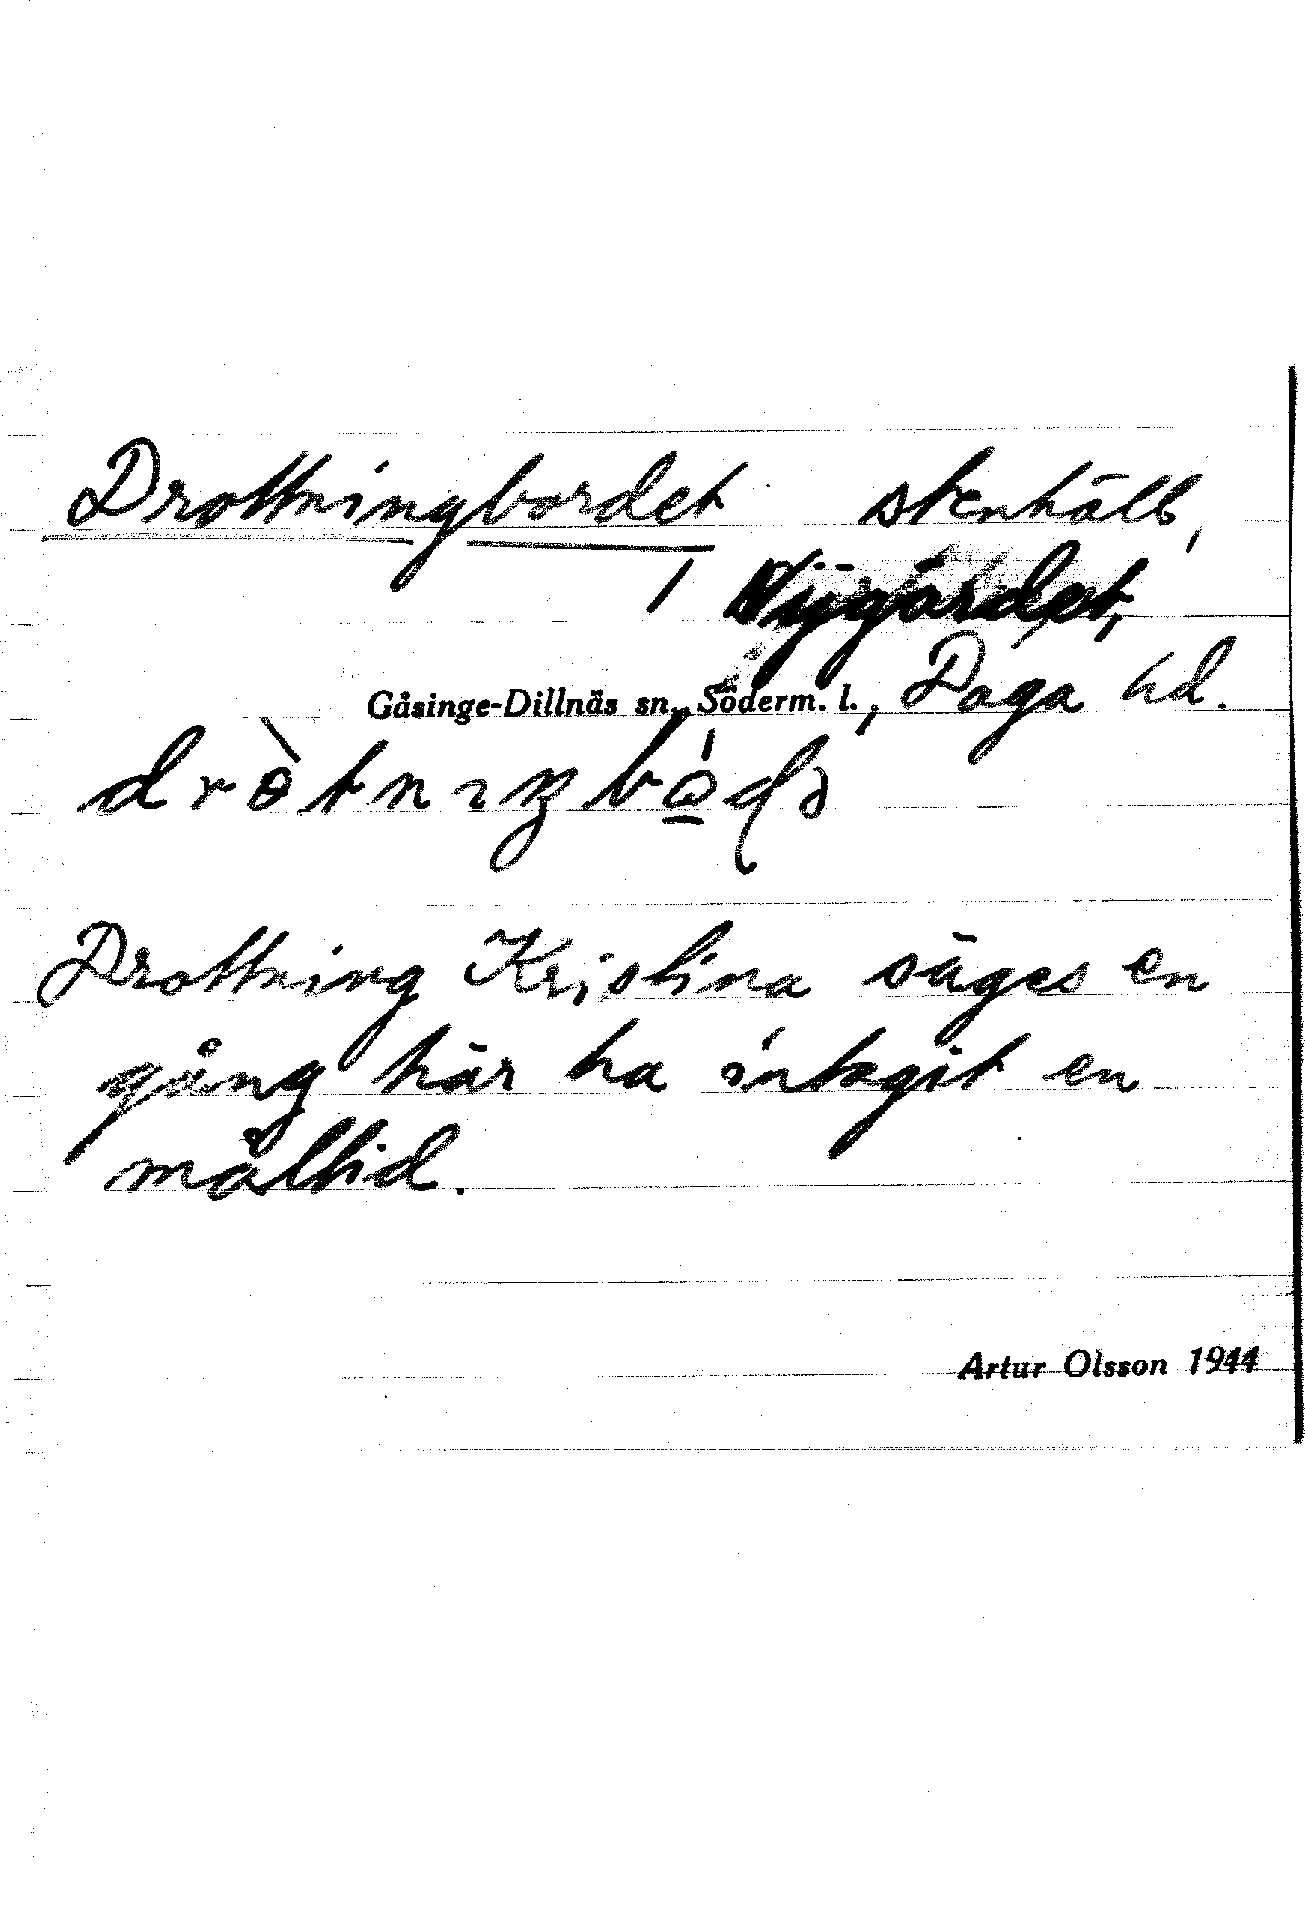 Drottningbordet stenhäll,
i Nygärdet,
Gåsinge-Dillnäs sn., Söderm. l., Daga hd.
Drottning Kristina säges en
gång här ha intagit en
måltid.
Artur Olsson 1944